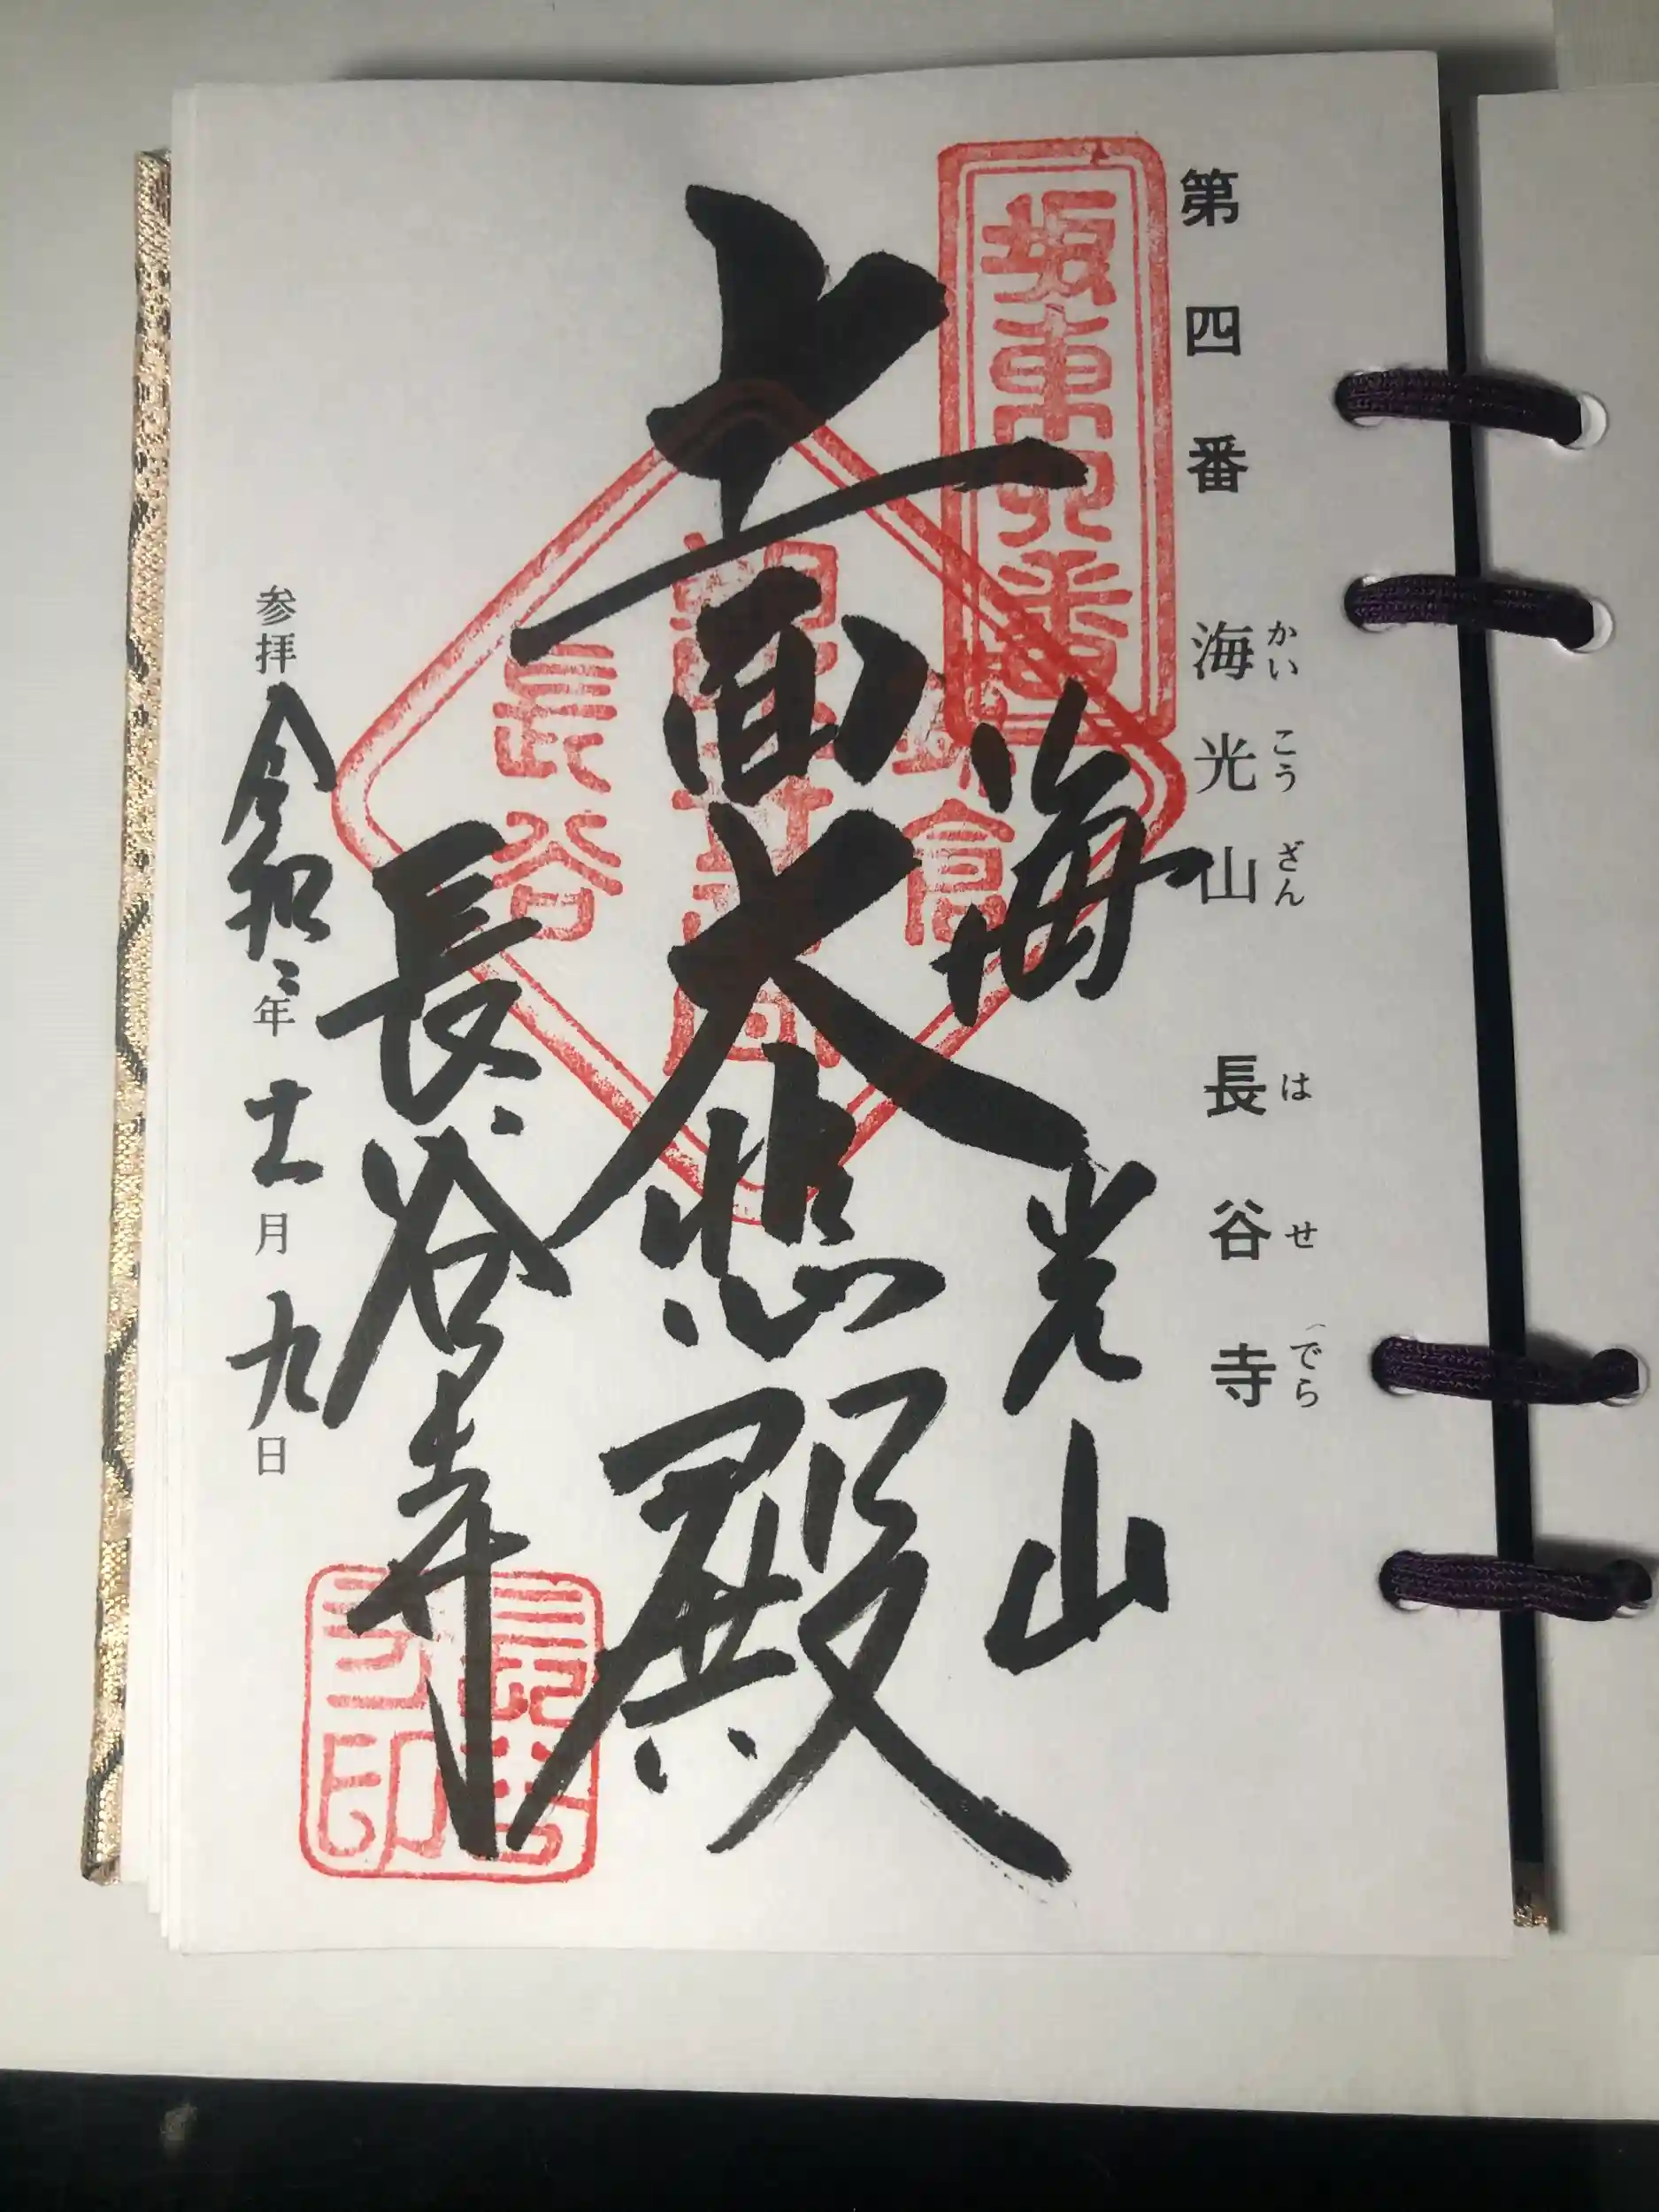 第四番 海光山 長谷寺
かいこうざん はせ（でら
坂東四番
海光山
鎌倉
十一面大悲殿
長谷
長谷寺
長谷
印
参拝 令和二年十一月九日